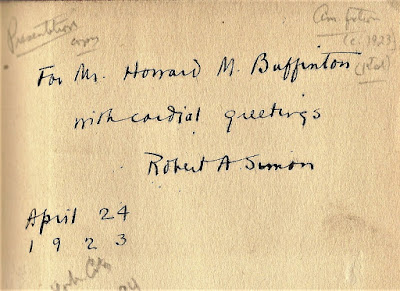 Presentation
copy
Am. fiction
(c. 1923)
For Mr. Howard M. Buffinton
with cordial greetings
Robert A Simon
April 24
1 9 2 3